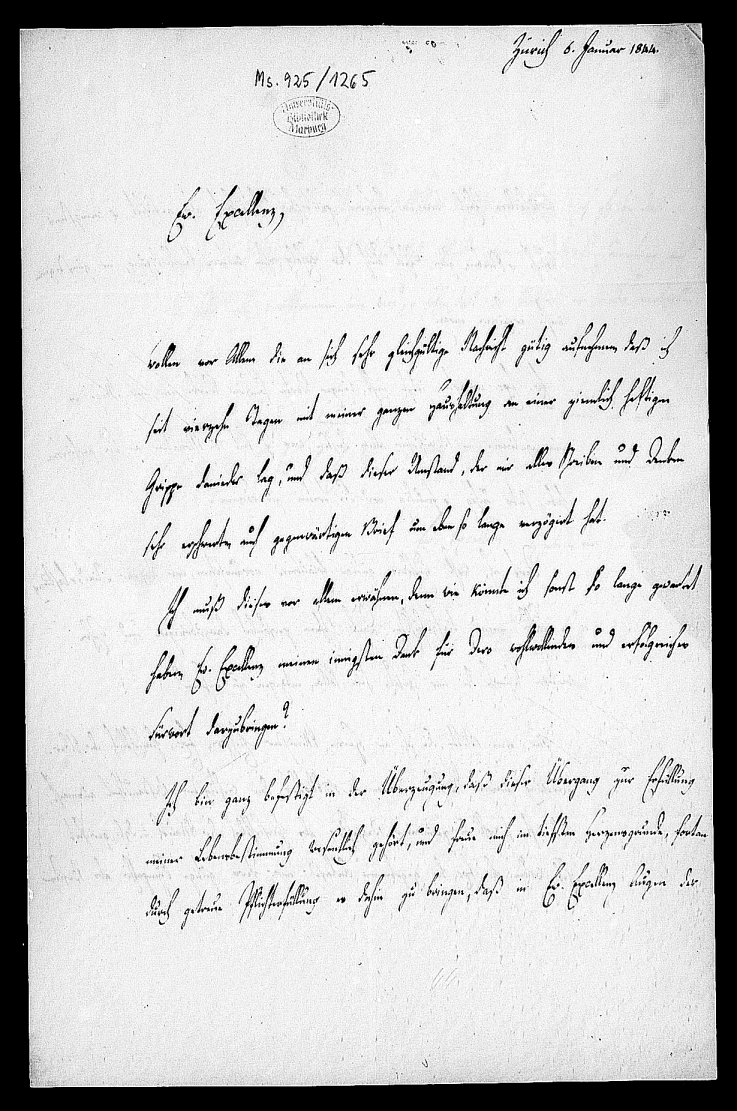 Zürich 6. Januar 1844.
Ms. 925/1265
Universitäts
Bibliothek
Marburg
Ew. Excellenz,
wollen vor Allem die an sich sehr gleichgültige Nachricht gütig aufnehmen, daß ich
seit vierzehn Tagen mit meiner ganzen Haushaltung an einer ziemlich heftigen
Grippe danieder lag, und daß dieser Umstand, der mir alles Schreiben und Denken
sehr erschwerte, auch gegenwärtigen Brief um eben so lange verzögert hat.
Ich muß dieses vor allem erwähnen, denn wie könnte ich sonst so lange gewartet
haben, Ew. Excellenz meinen innigsten Dank für Dero wohlwollendes und erfolgreiches
Fürwort darzubringen?
Ich bin ganz befestigt in der Überzeugung, daß dieser Übergang zur Erfüllung
meiner Lebensbestimmung wesentlich gehört, und freue mich im tiefsten Herzensgrunde, fortan
durch getreue Pflichterfüllung es dahin zu bringen, daß in Ew. Excellenz Augen der